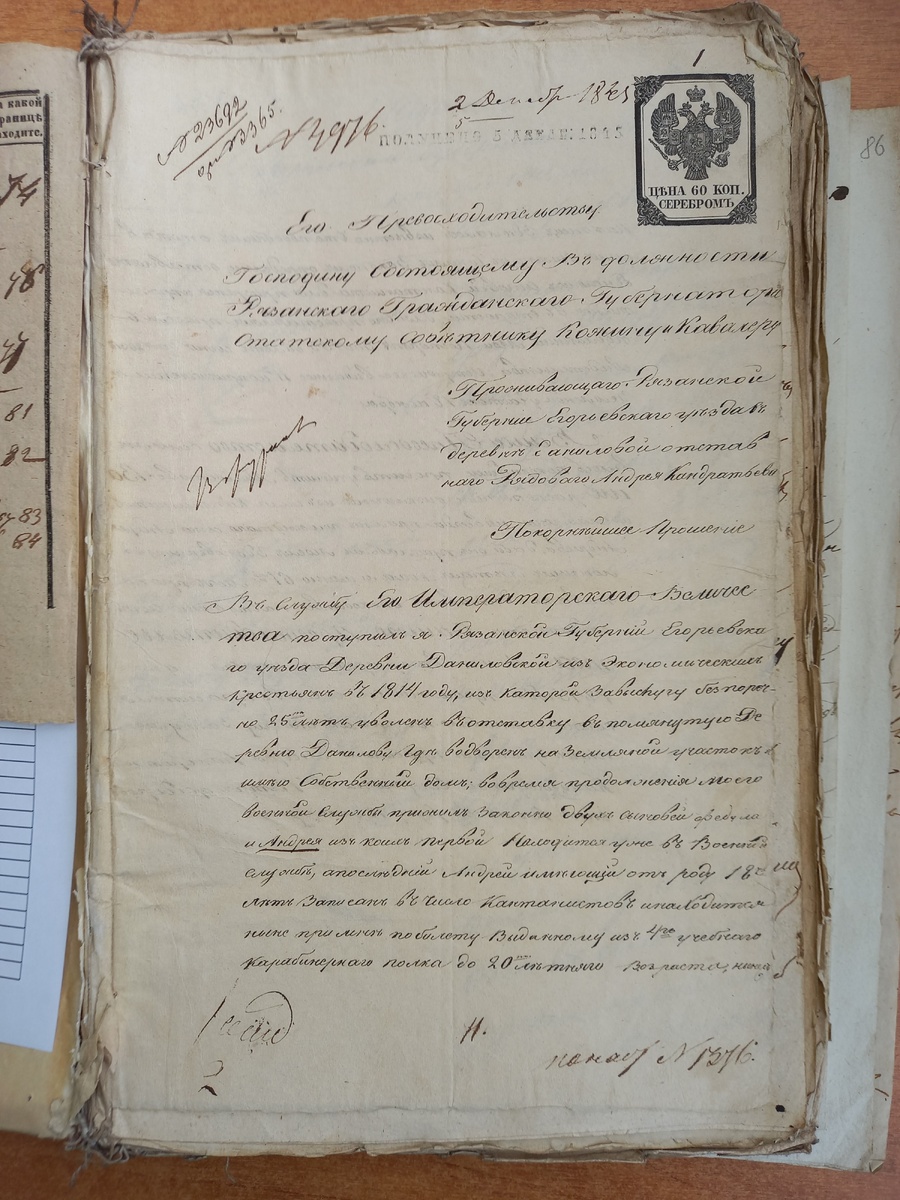 а какой
ранице
аходитс.
74
48
81
82
83
84
1
86
№ 23692
№ 3365.
№ 4976.
2 Декабр 1845
5
ПОЛУЧЕНО 5 ДЕКАБ: 1845
ЦѢНА 60 КОП.
СЕРЕБРОМЪ.
Его Превосходительству
Господину Состоящему въ должности
Рязанскаго Гражданскаго Губернатора
Статскому Совѣтнику Кожину и Кавалеру
Проживающаго Рязанской
Губерніи Егорьевскаго уѣзда въ
деревнѣ Даниловой отстав
наго Рядоваго Андрея Кандратьева
Покорнѣйшее Прошеніе
Въ Службу Его Императорскаго Величес
тва поступилъ я Рязанской Губерніи Егорьевска
го уѣзда Деревни Даниловской изъ Экономическихъ
Крестьянъ въ 1814 году, изъ каторой Завыслугу безпороч-
но 25 лѣтъ уволенъ въ отставку въ помянутую Де
ревню Данилову Гдѣ водворенъ на Земляной участокъ
имѣю Собственный домъ; вовремя продолженія моего
военной Службы прижилъ Законно двухъ сыновей Федула
и Андрея изъ коихъ первой Находится уже въ Военной
службѣ, апослѣдній Андрей имѣющій отъ роду 18
лѣтъ Записанъ въ число Кантанистовъ инаходится
нынѣ при мнѣ побилету Выданному изъ 4го учебнаго
Карабинернаго полка до 20 лѣтняго Возраста,
2
11.
№ 1376.